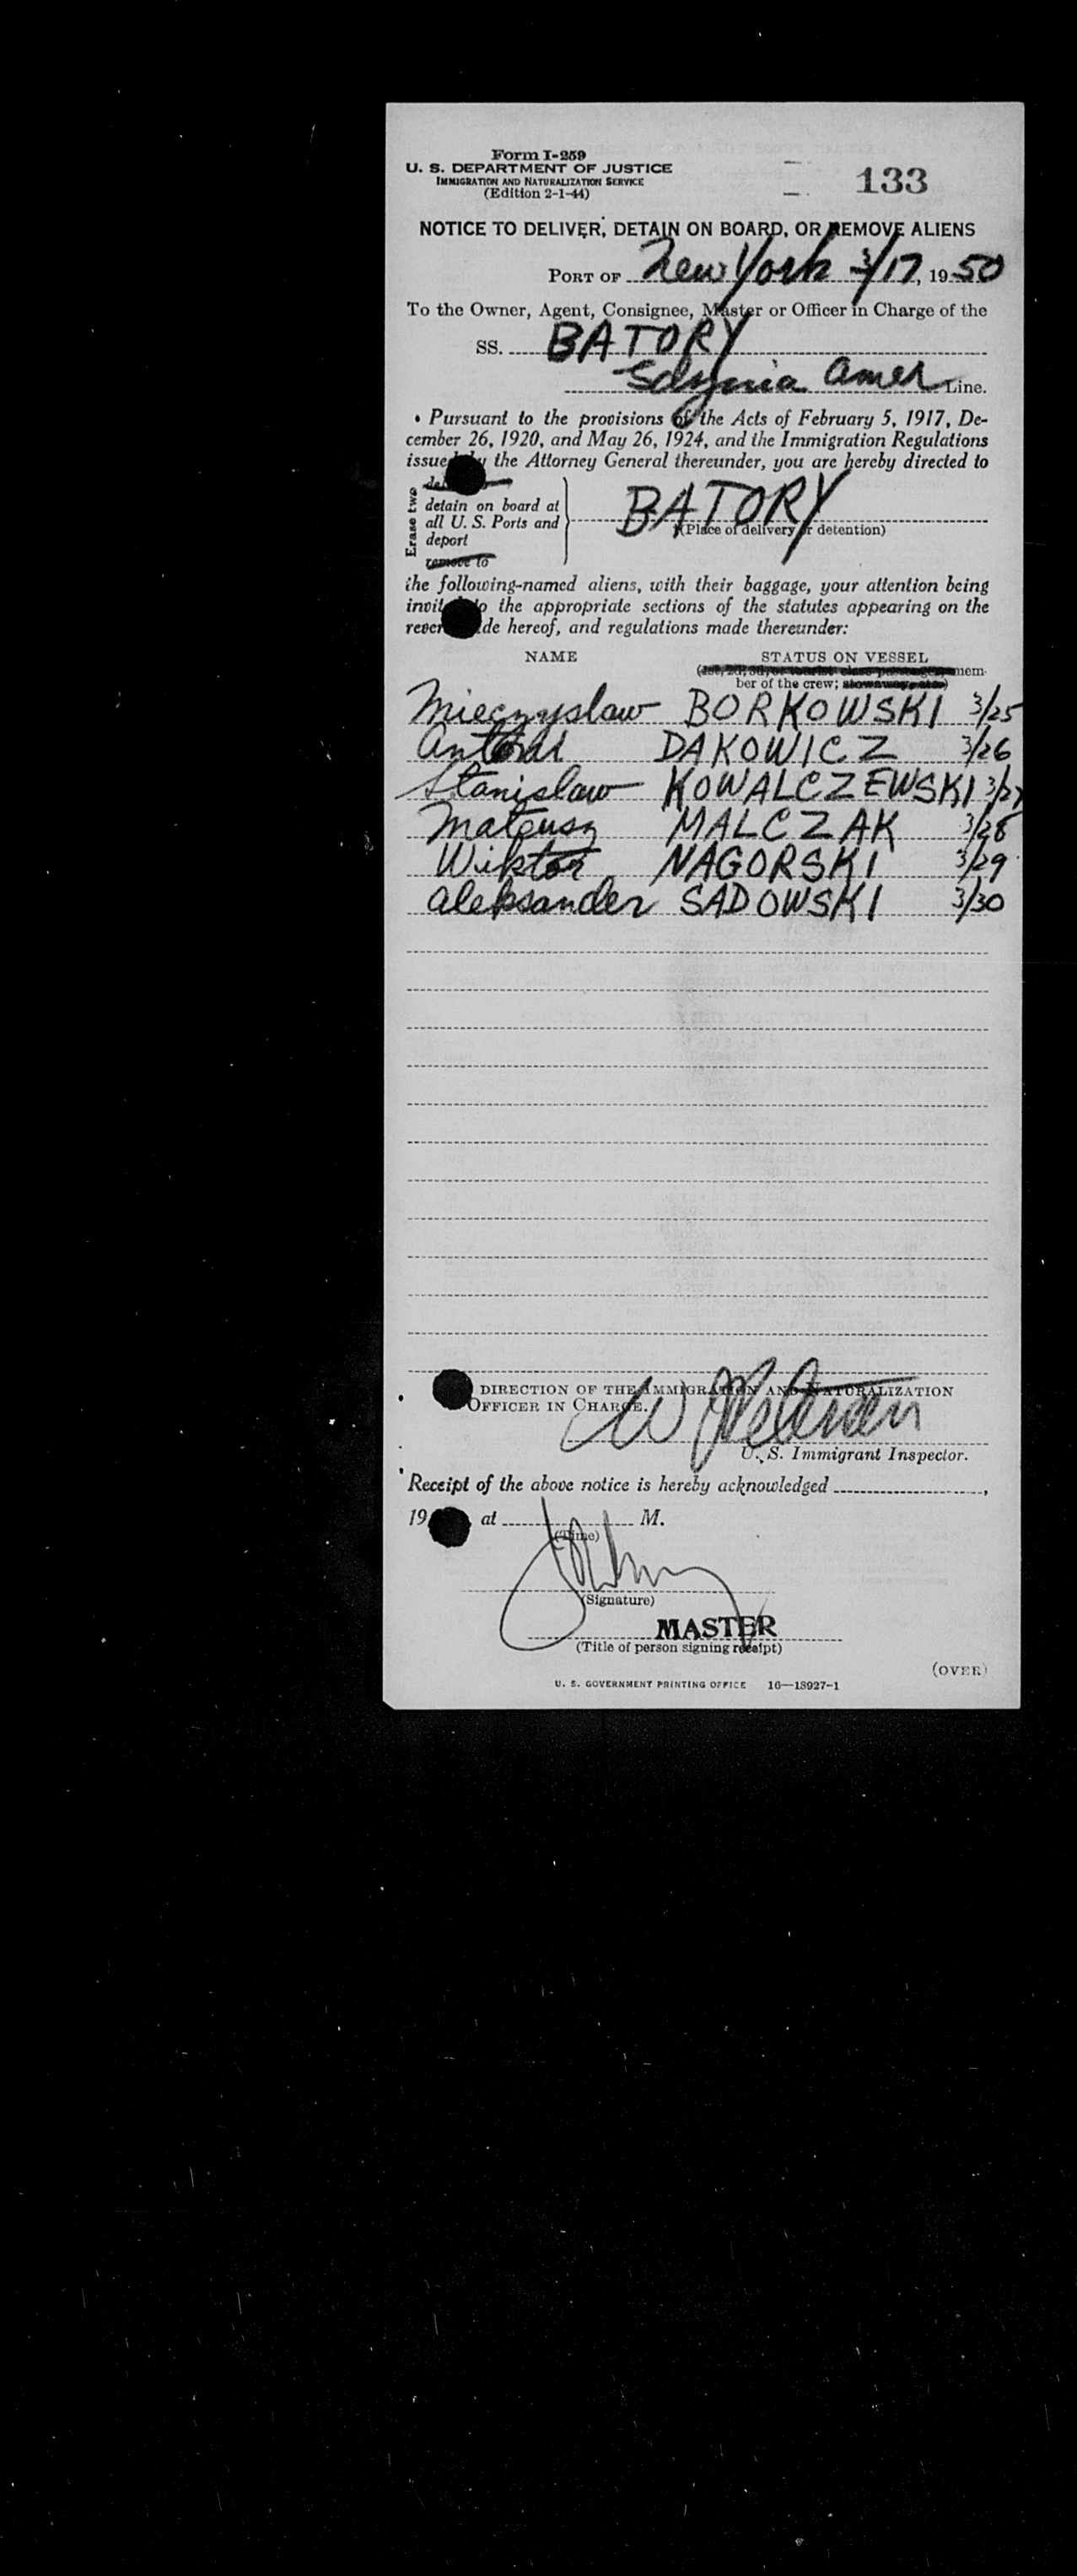 Form I-259
U. S. DEPARTMENT OF JUSTICE
IMMIGRATION AND NATURALIZATION SERVICE
(Edition 2-1-44)
133
NOTICE TO DELIVER, DETAIN ON BOARD, OR REMOVE ALIENS
PORT OF New York 3/17, 1950
To the Owner, Agent, Consignee, Master or Officer in Charge of the
SS. BATORY
Gdynia Amer Line.
Pursuant to the provisions of the Acts of February 5, 1917, De-
cember 26, 1920, and May 26, 1924, and the Immigration Regulations
issued by the Attorney General thereunder, you are hereby directed to
Erase two
detain on board at
all U. S. Ports and
deport
remove to
BATORY
(Place of delivery or detention)
the following-named aliens, with their baggage, your attention being
invited to the appropriate sections of the statutes appearing on the
reverse side hereof, and regulations made thereunder:
NAME STATUS ON VESSEL
(1st, 2d, 3d, or tourist class passenger, mem-
ber of the crew; stowaway, etc.)
Mieczyslaw BORKOWSKI 3/25
Antoni DAKOWICZ 3/26
Stanislaw KOWALCZEWSKI 3/27
Mateusz MALCZAK 3/28
Wiktor NAGORSKI 3/29
Aleksander SADOWSKI 3/30
DIRECTION OF THE IMMIGRATION AND NATURALIZATION
OFFICER IN CHARGE.
U. S. Immigrant Inspector.
Receipt of the above notice is hereby acknowledged ,
19 at M.
(Time)
(Signature)
MASTER
(Title of person signing receipt)
(OVER)
U. S. GOVERNMENT PRINTING OFFICE 16—13927-1